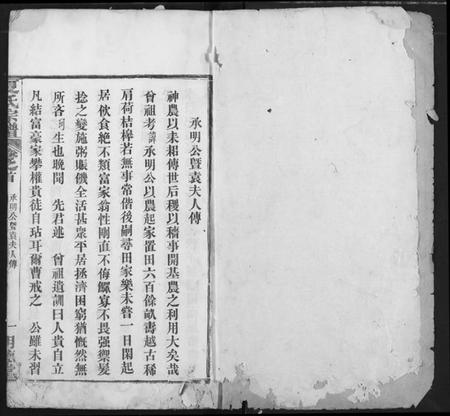 承明公暨袁夫人傳
神農以耒耜傳世后稷以稼事開基農之利用大矣哉
曾祖考承明公以農起家置田六百餘畝壽越古稀
肩荷桔槔若無事常偕後嗣尋田家樂未嘗一日閑起
居飲食絶不類富家翁性剛直不侮鰥寡不畏強禦髮
捻之變施粥賑饑全活甚衆平居拯濟困窮猶慨然無
所吝 生也晚聞 先君述 曾祖遺訓曰人貴自立
凡結富豪家攀權貴徒自玷耳爾曹戒之 公雖未習
氏宗譜
卷之首
承明公暨袁夫人傳
一